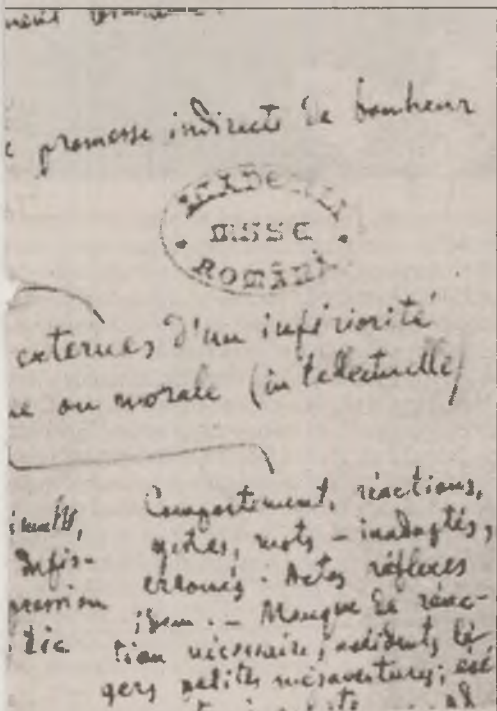 promesse indirecte de bonheur
ACADEMIEI
MSSE
ROMÂNE
externes d'un infériorité
ue ou morale (intellectuelle)
Comportement, réactions,
gestes, mots – inadaptés,
erronés. Actes réflexes
idem. – Manque de réac-
tion nécessaire; accidents lé-
gers petites mésaventures;